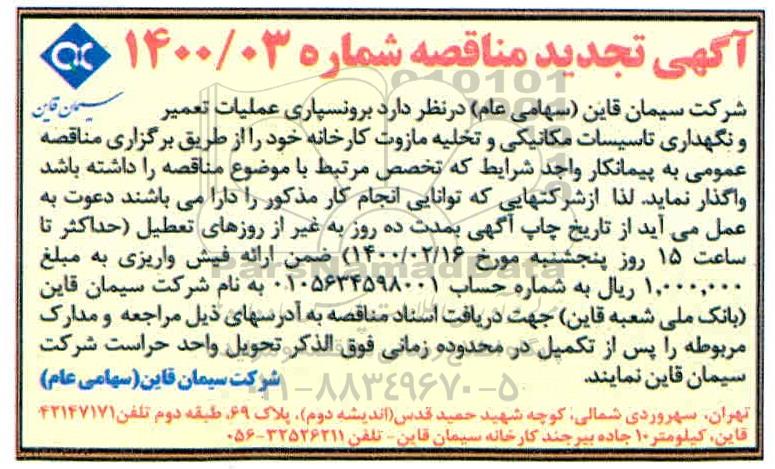 آگهی تجدید مناقصه شماره ۱۴۰۰/۰۳
سیمان قاین
شرکت سیمان قاین (سهامی عام) درنظر دارد برونسپاری عملیات تعمیر
و نگهداری تاسیسات مکانیکی و تخلیه مازوت کارخانه خود را از طریق برگزاری مناقصه
عمومی به پیمانکار واجد شرایط که تخصص مرتبط با موضوع مناقصه را داشته باشد
واگذار نماید. لذا ازشرکتهایی که توانایی انجام کار مذکور را دارا می باشند دعوت به
عمل می آید از تاریخ چاپ آگهی بمدت ده روز به غیر از روزهای تعطیل (حداکثر تا
ساعت ۱۵ روز پنجشنبه مورخ ۱۴۰۰/۰۲/۱۶) ضمن ارائه فیش واریزی به مبلغ
۱,۰۰۰,۰۰۰ ریال به شماره حساب ۰۱۰۵۶۳۴۵۹۸۰۰۱ به نام شرکت سیمان قاین
(بانک ملی شعبه قاین) جهت دریافت اسناد مناقصه به آدرسهای ذیل مراجعه و مدارک
مربوطه را پس از تکمیل در محدوده زمانی فوق الذکر تحویل واحد حراست شرکت
سیمان قاین نمایند.
شرکت سیمان قاین(سهامی عام)
تهران، سهروردی شمالی، کوچه شهید حمید قدس(اندیشه دوم)، پلاک ۶۹، طبقه دوم تلفن۴۲۱۴۷۱۷۱
قاین، کیلومتر۱۰ جاده بیرجند کارخانه سیمان قاین- تلفن ۳۲۵۲۶۲۱۱-۰۵۶
ParsNamadData
۰۲۱-۸۸۳۴۹۶۷۰-۵